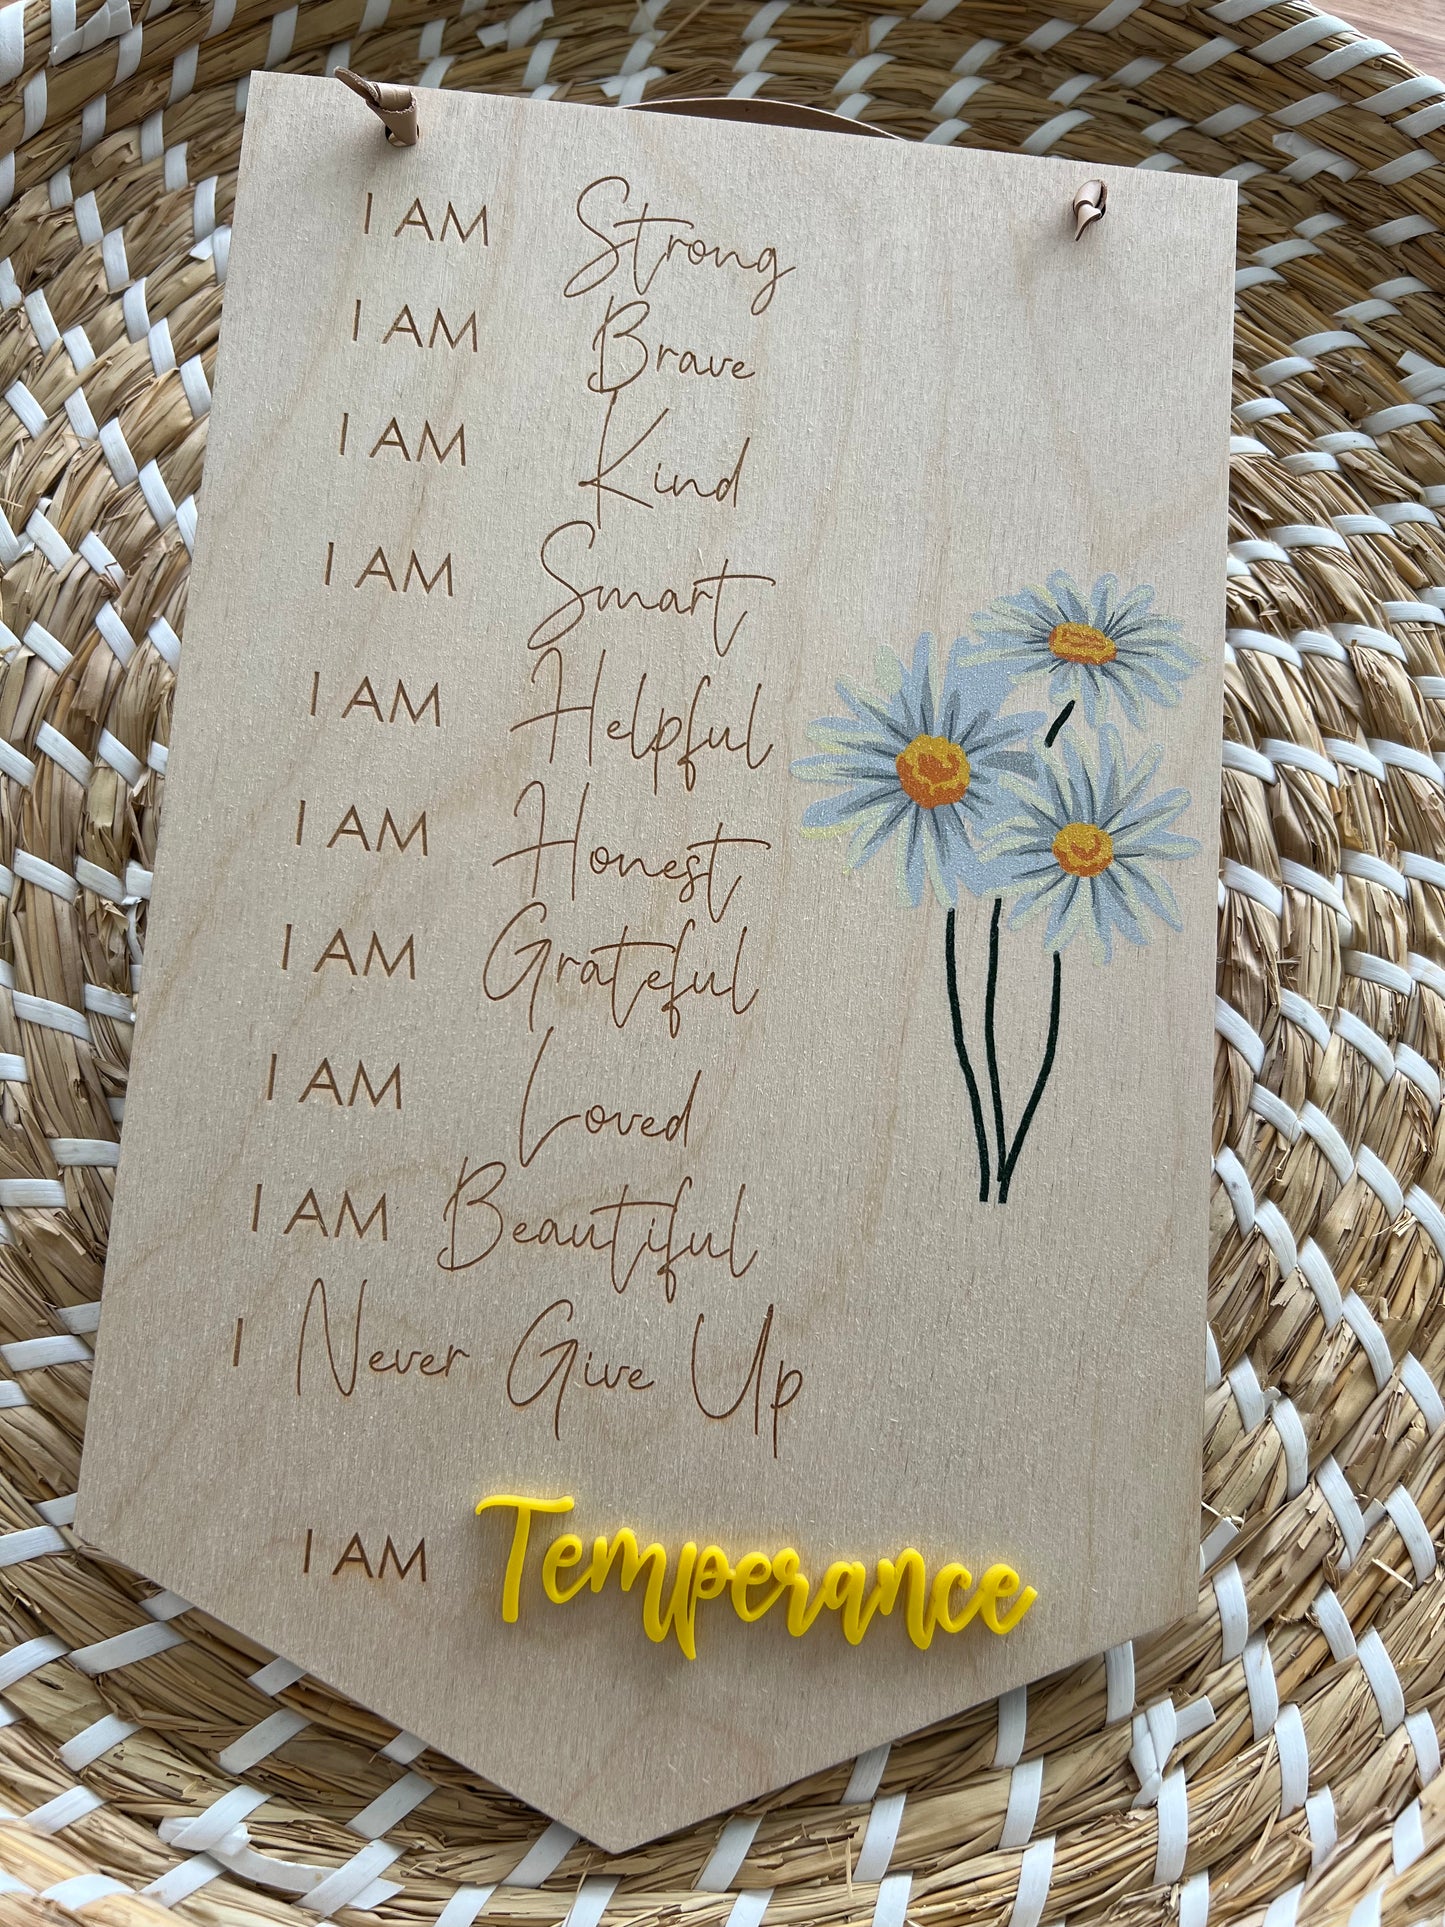 I AM Strong
I AM Brave
I AM Kind
I AM Smart
I AM Helpful
I AM Honest
I AM Grateful
I AM Loved
I AM Beautiful
I Never Give Up
I AM Temperance